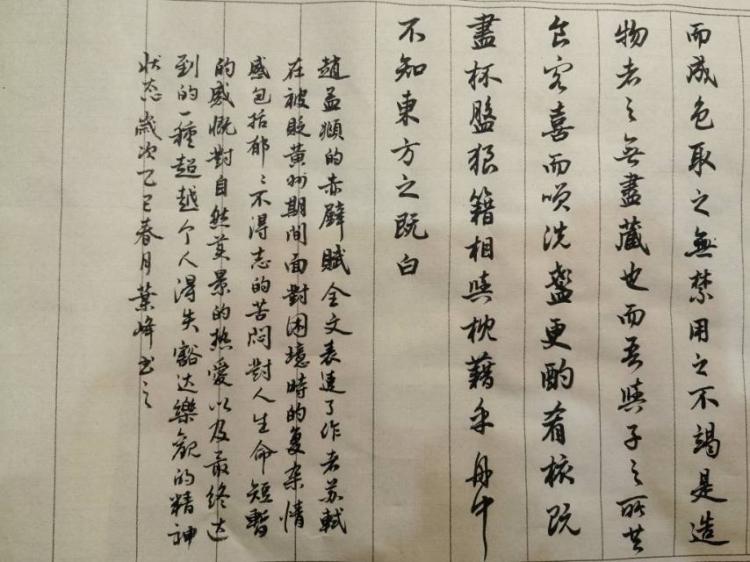 而成色取之無禁用之不竭是造
物者之無盡藏也而吾與子之所共
食客喜而唉洗盞更酌肴核既
盡杯盤狼籍相與枕藉乎舟中
不知東方之既白
趙孟頫的赤壁賦全文表達了作者苏軾
在被貶黄州期間面對困境時的复杂情
感包括郁〻不得志的苦悶對人生命短暫
的感慨對自然美景的热愛以及最终达
到的一種超越个人得失豁达樂觀的精神
状态歲次乙巳春月葉峰书之